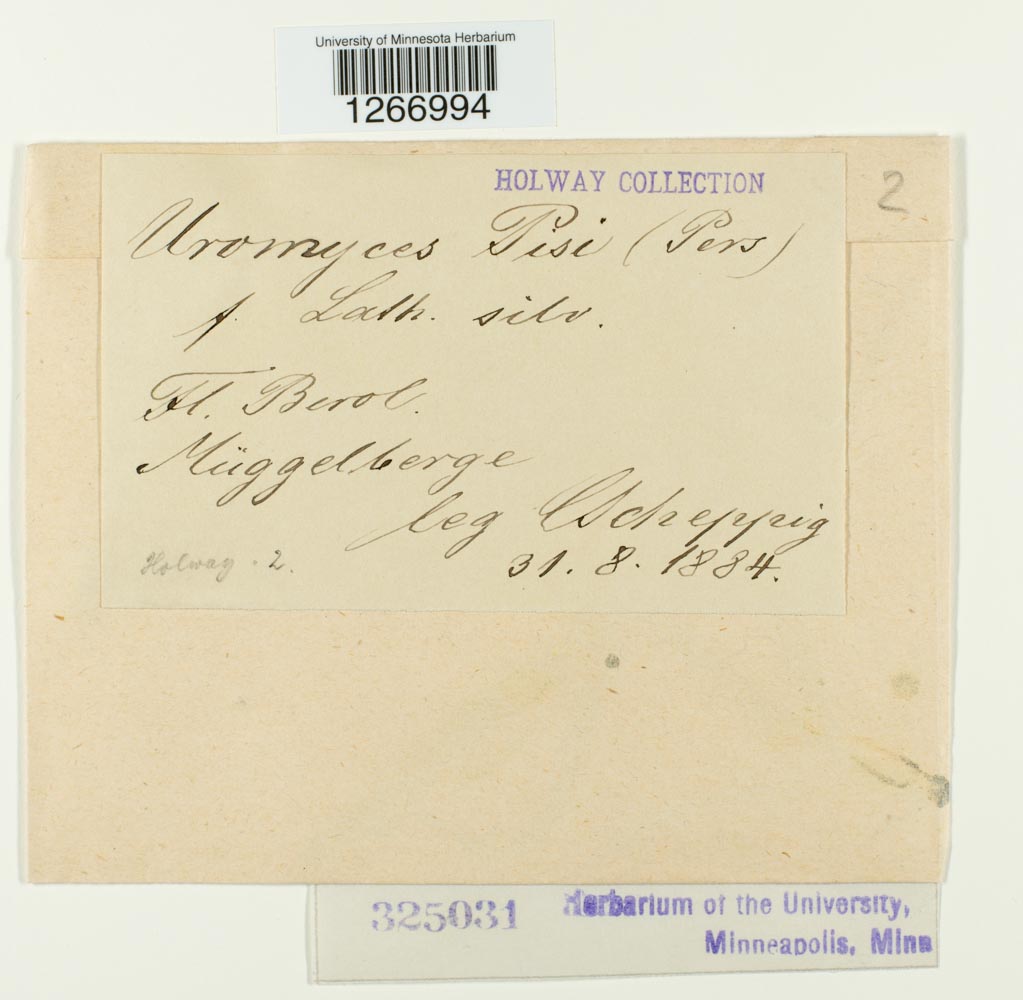 University of Minnesota Herbarium
1266994
HOLWAY COLLECTION
2
Uromyces Pisi (Pers)
f. Lath. silv.
Fl. Berol.
Müggelberge
leg CScheppig
31. 8. 1884.
Holway . 2.
325031
Herbarium of the University,
Minneapolis, Minn